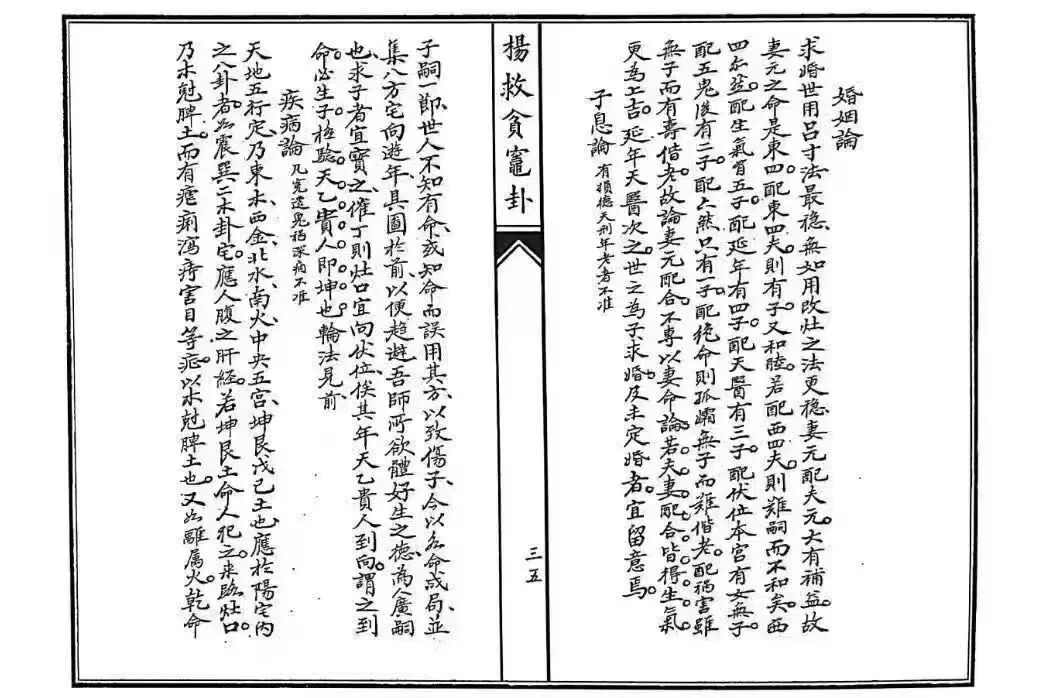 婚姻論
求婚世用呂才法最穩無如用改灶之法更穩妻元配夫元大有補益故
妻元之命是東四配東四夫則有子又和睦若配西四夫則難嗣而不和矣西
四亦然配生氣有五子配延年有四子配天醫有三子配伏位本宮有女無子
配五鬼後有二子配六煞只有一子配絕命則孤孀無子而難偕老配禍害雖
無子而有壽偕老故論妻元配合不專以妻命論若夫妻配合皆得生氣
更為上吉延年天醫次之世之為子求婚及未定婚者宜留意焉
子息論 有損德天刑年老者不准
楊救貧竈卦
三五
子嗣一節世人不知有命或知命而誤用其方以致傷子今以各命成局並
集八方宅向遊年具圖於前以便趨避吾師所欲體好生之德為人廣嗣
也求子者宜寶之催丁則灶口宜向伏位俟其年天乙貴人到向謂之到
命必生子極驗天乙貴人即坤也輪法見前
疾病論 凡冤遠鬼祟深病不准
天地五行定乃東木西金北水南火中央五宮坤艮戊己土也應於陽宅內
之八卦者如震巽二木卦宅應人腹之肝經若坤艮土命人犯之來路灶口
乃木尅脾土而有瘧痢瀉痔害目等症以木尅脾土也又如離属火乾命